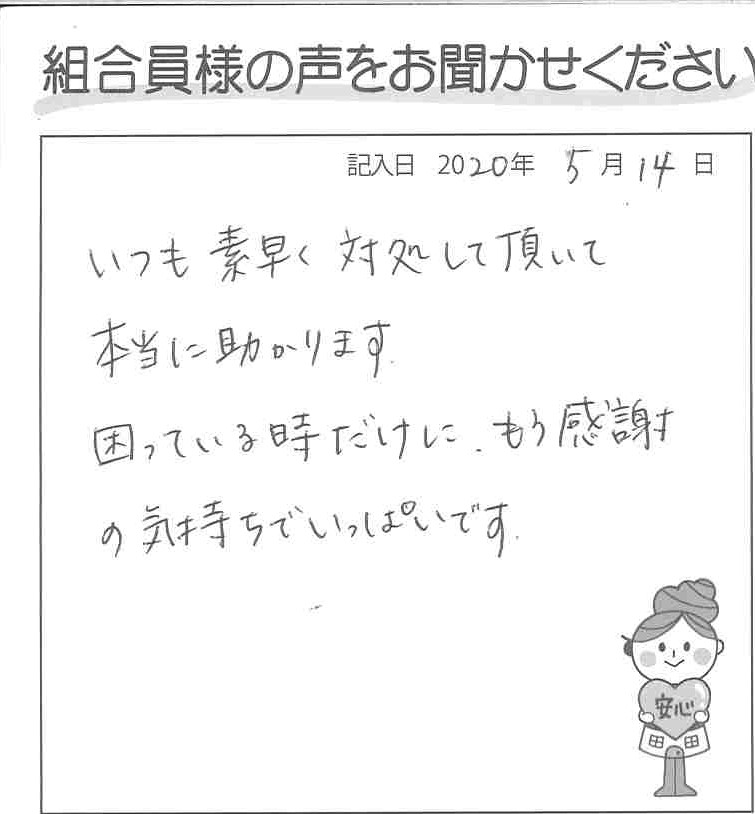 組合員様の声をお聞かせください
記入日 2020年 5月14日
いつも素早く対処して頂いて
本当に助かります.
困っている時だけに、もう感謝
の気持ちでいっぱいです.
安心